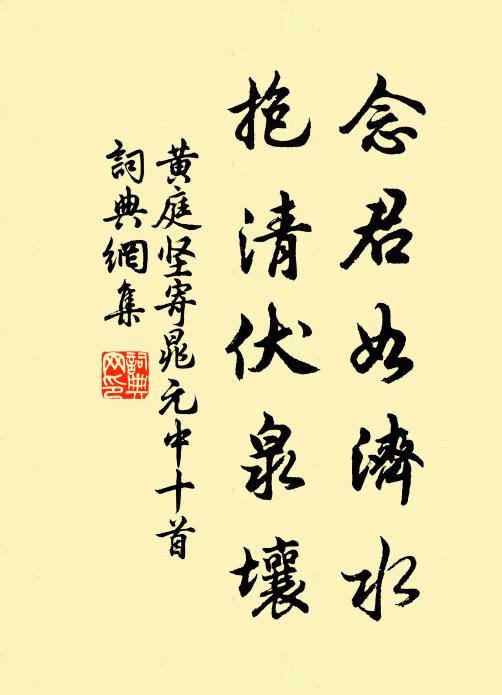 念君如濟水
抱清伏泉壤
黄庭坚寄晁元中十首
詞典網集